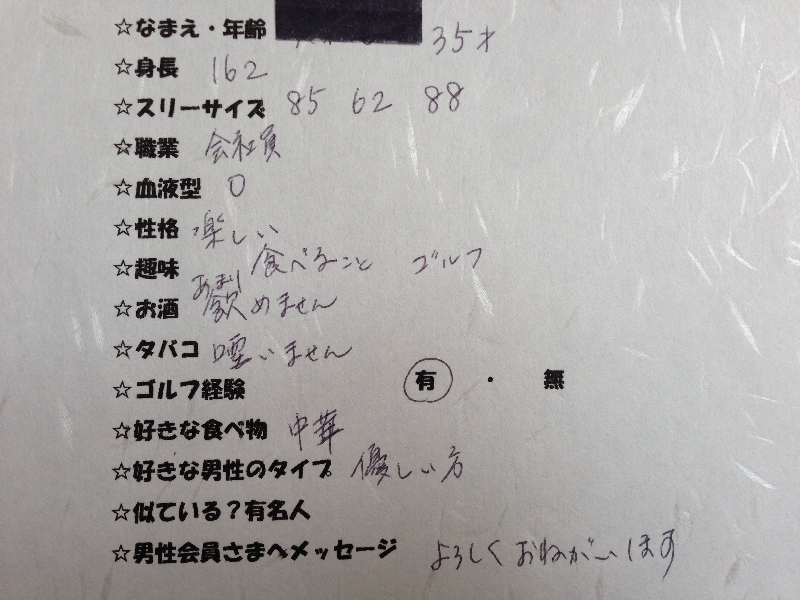 ☆なまえ・年齢 35才
☆身長 162
☆スリーサイズ 85 62 88
☆職業 会社員
☆血液型 O
☆性格 楽しい
☆趣味 食べること ゴルフ
☆お酒 あまり飲めません
☆タバコ 喫いません
☆ゴルフ経験 有 ・ 無
☆好きな食べ物 中華
☆好きな男性のタイプ 優しい方
☆似ている?有名人
☆男性会員さまへメッセージ よろしくおねがいします